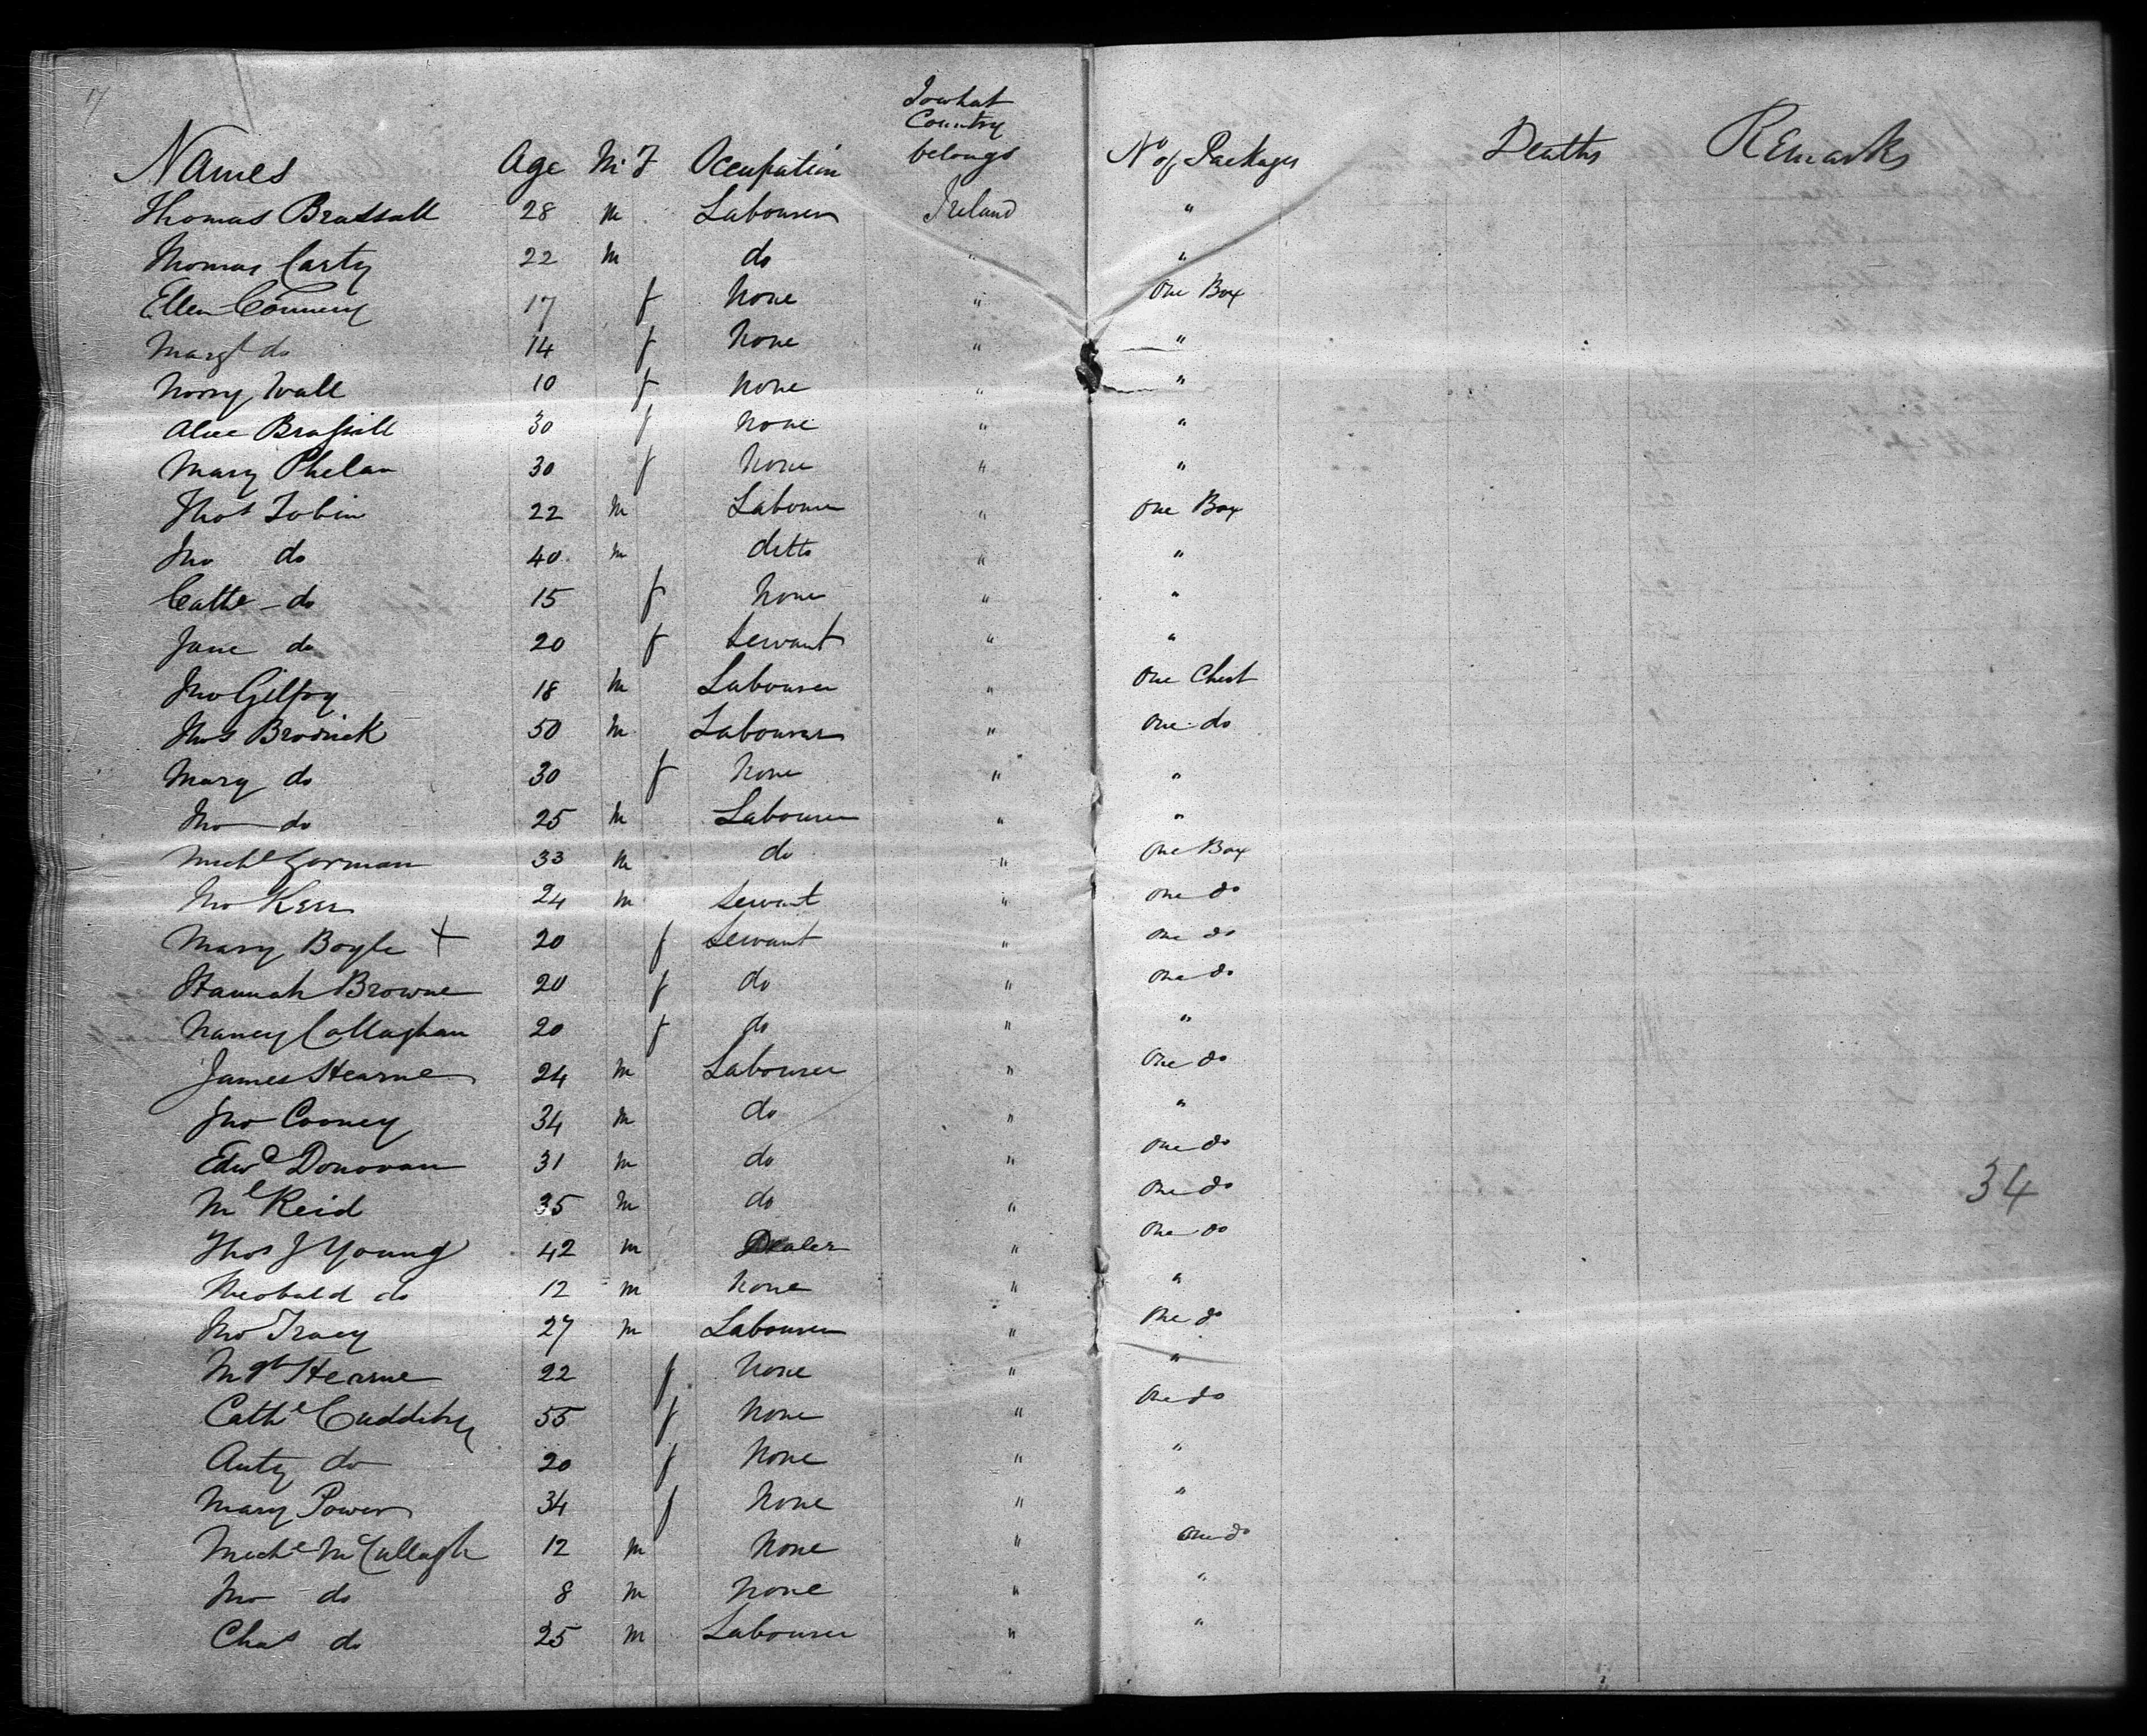 17
To what
Country
Names Age M F Occupation belongs No of Packages Deaths Remarks
Thomas Brassill 28 m Labourer Ireland "
Thomas Carty 22 m do " "
Ellen Connery 17 f None " One Box
Margt do 14 f None " "
Norry Wall 10 f None " "
Alice Brassill 30 f None " "
Mary Phelan 30 f None " "
Thos Tobin 22 m Labourer " One Box
Jno do 40 m ditto " "
Cathe do 15 f None " "
Jane do 20 f Servant " "
Jno Gilfoy 18 m Labourer " One Chest
Thos Brodrick 50 m Labourer " One do
Mary do 30 f None " "
Jno do 25 m Labourer " "
Michl Gorman 33 m do " One Box
Jno Kerr 24 m Servant " One do
Mary Boyle + 20 f Servant " One do
Hannah Browne 20 f do " One do
Nancy Callaghan 20 f do " "
James Hearne 24 m Labourer " One do
Jno Cooney 34 m do " "
Edwd Donovan 31 m do " One do
Ml Reid 35 m do " One do
34
Thos J Young 42 m Dealer " One do
Theobald do 12 m None " "
Jno Tracy 27 m Labourer " One do
Mgt Hearne 22 f None " "
Cathe Cuddihy 55 f None " One do
Anty do 20 f None " "
Mary Power 34 f None " "
Michl McCullagh 12 m None " One do
Jno do 8 m None " "
Chas do 25 m Labourer " "